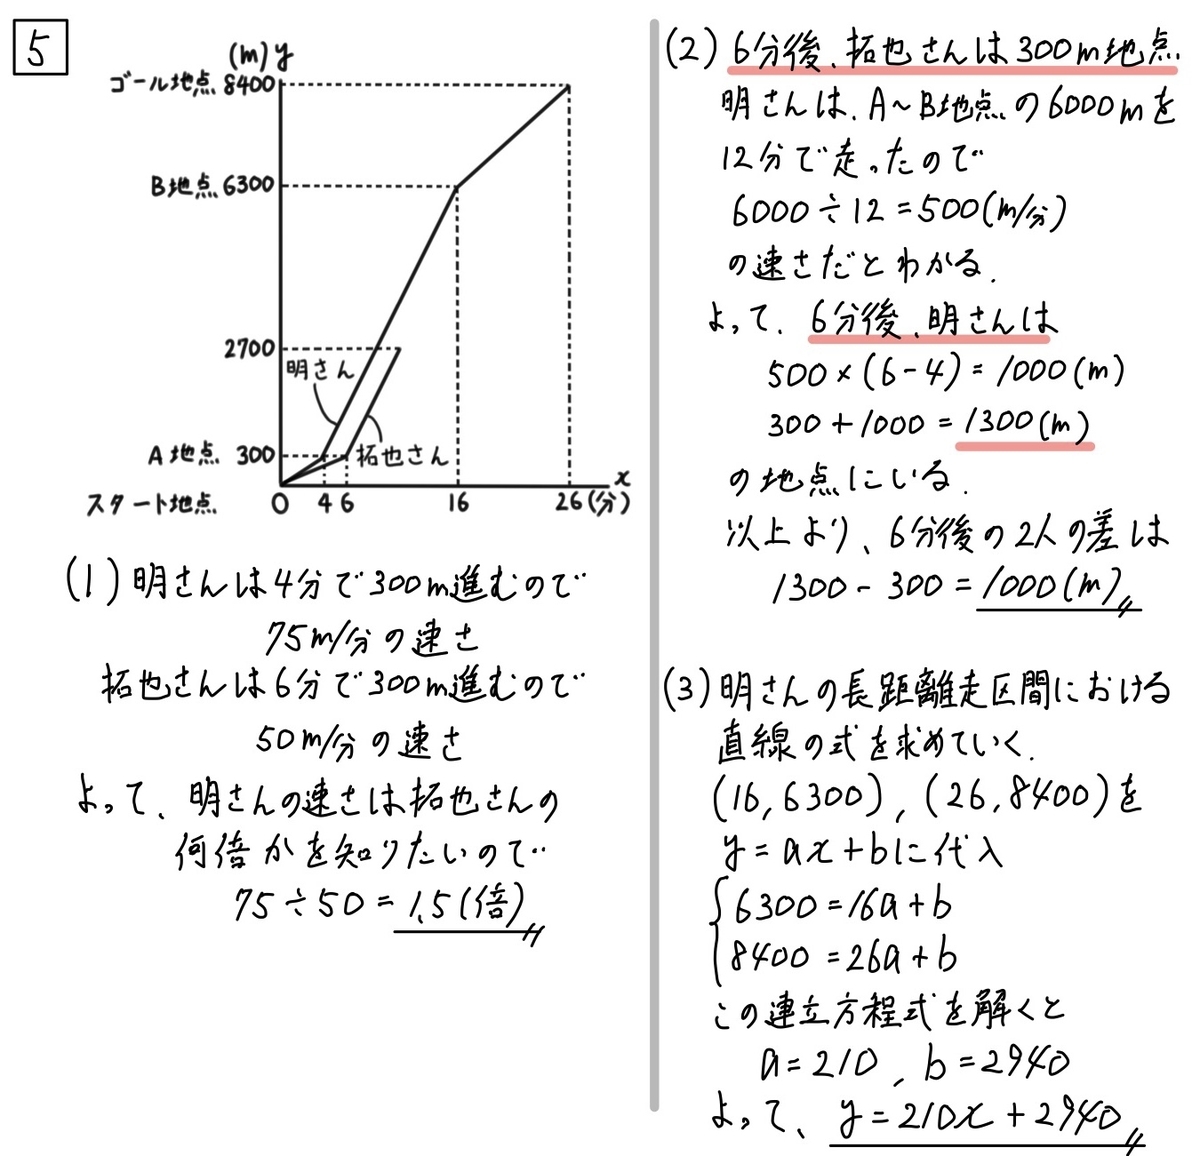 5
(m) y
ゴール地点 8400
B地点 6300
2700
明さん
A地点 300
拓也さん
x
スタート地点 0 4 6 16 26(分)
(1) 明さんは4分で300m進むので
75m/分の速さ
拓也さんは6分で300m進むので
50m/分の速さ
よって、明さんの速さは拓也さんの
何倍かを知りたいので
75÷50=1.5(倍)
(2) 6分後、拓也さんは300m地点
明さんは、A~B地点の6000mを
12分で走ったので
6000÷12=500(m/分)
の速さだとわかる.
よって、6分後、明さんは
500×(6-4)=1000(m)
300+1000=1300(m)
の地点にいる.
以上より、6分後の2人の差は
1300-300=1000(m)
(3) 明さんの長距離走区間における
直線の式を求めていく.
(16,6300),(26,8400)を
y=ax+bに代入
6300=16a+b
8400=26a+b
この連立方程式を解くと
a=210, b=2940
よって、y=210x+2940